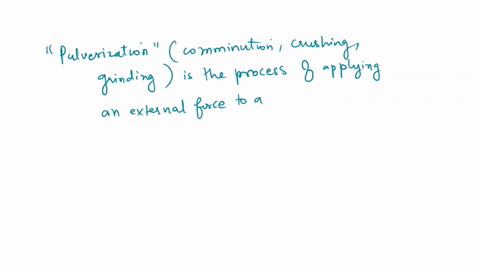 "Pulverization" (comminution, crushing,
grinding) is the process of applying
an external force to a